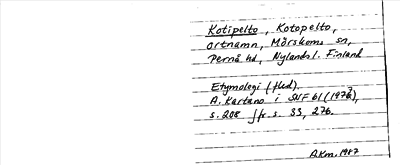 Kotipelto, Kotopelto,
ortnamn, Mörskoms sn,
Pernå hd, Nylands l. Finland
Etymologi (fled).
A. Kartano i SNF 61 (1973),
s. 208 jfr s. 33, 276.
AKm. 1987